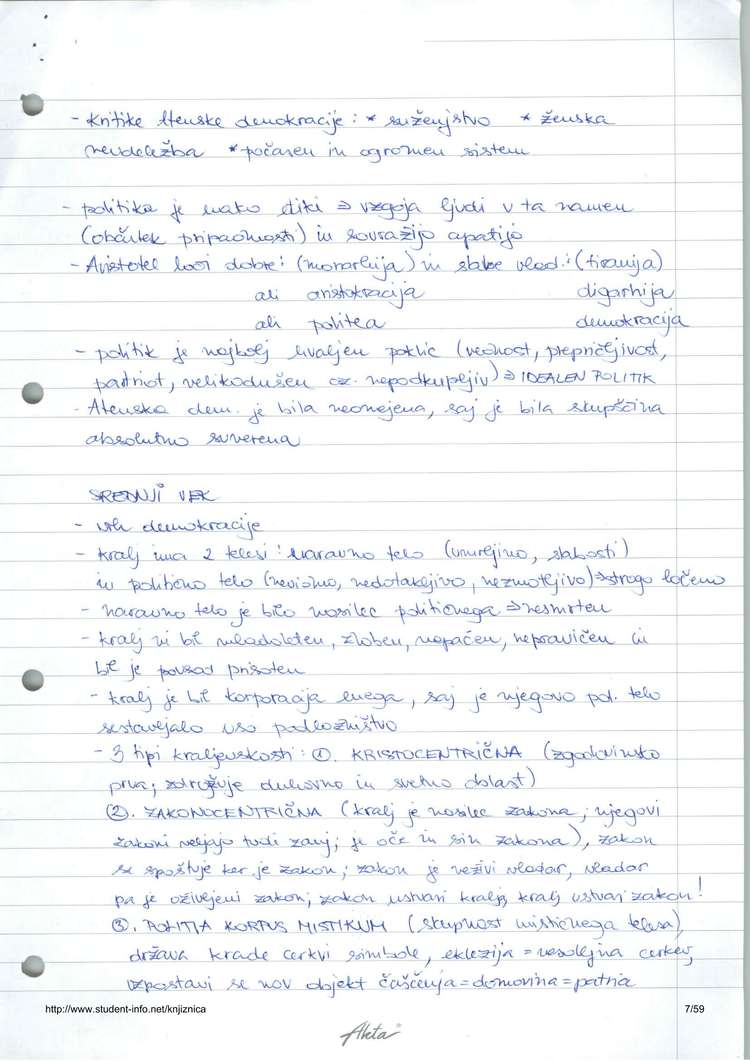 - kritike Atenske demokracije : * suženjstvo * ženska
neudeležba * počasen in ogromen sistem
- politika je enako etiki ⇒ vzgoja ljudi v ta namen
(občutek pripadnosti) in sovražijo apatijo
- Aristotel loči dobre: (monarhija) in slabe vlad.: (tiranija)
ali aristokracija oligarhija
ali politea demokracija
- politik je najbolj hvaljen poklic (večnost, prepričljivost,
patriot, velikodušen oz. nepodkupljiv) ⇒ IDEALEN POLITIK
- Atenska dem. je bila neomejena, saj je bila skupščina
absolutno suverena
SREDNJI VEK
- vrh demokracije
- kralj ima 2 telesi : naravno telo (umrljivo, slabosti)
in politično telo (nevidno, nedotakljivo, nezmotljivo) ⇒ strogo ločeno
- naravno telo je bilo nosilec političnega ⇒ nesmrten
- kralj ni bil mladoleten, zloben, napačen, nepravičen in
bil je povsod prisoten
- kralj je bil korporacija enega, saj je njegovo pol. telo
sestavljalo vso podložništvo
- 3 tipi kraljevskosti : 1. KRISTOCENTRIČNA (zgodovinsko
prva; združuje duhovno in svetno oblast)
2. ZAKONOCENTRIČNA (kralj je nosilec zakona; njegovi
zakoni veljajo tudi zanj; je oče in sin zakona), zakon
se spoštuje ker je zakon; zakon je neživi vladar, vladar
pa je oživljeni zakon; zakon ustvari kralja, kralj ustvari zakon!
3. POLITIA KORPUS MISTIKUM (skupnost mističnega telesa),
država krade cerkvi simbole, eklezija = vesoljna cerkev,
vzpostavi se nov objekt čaščenja = domovina = patria
http://www.student-info.net/knjiznica 7/59
Akta